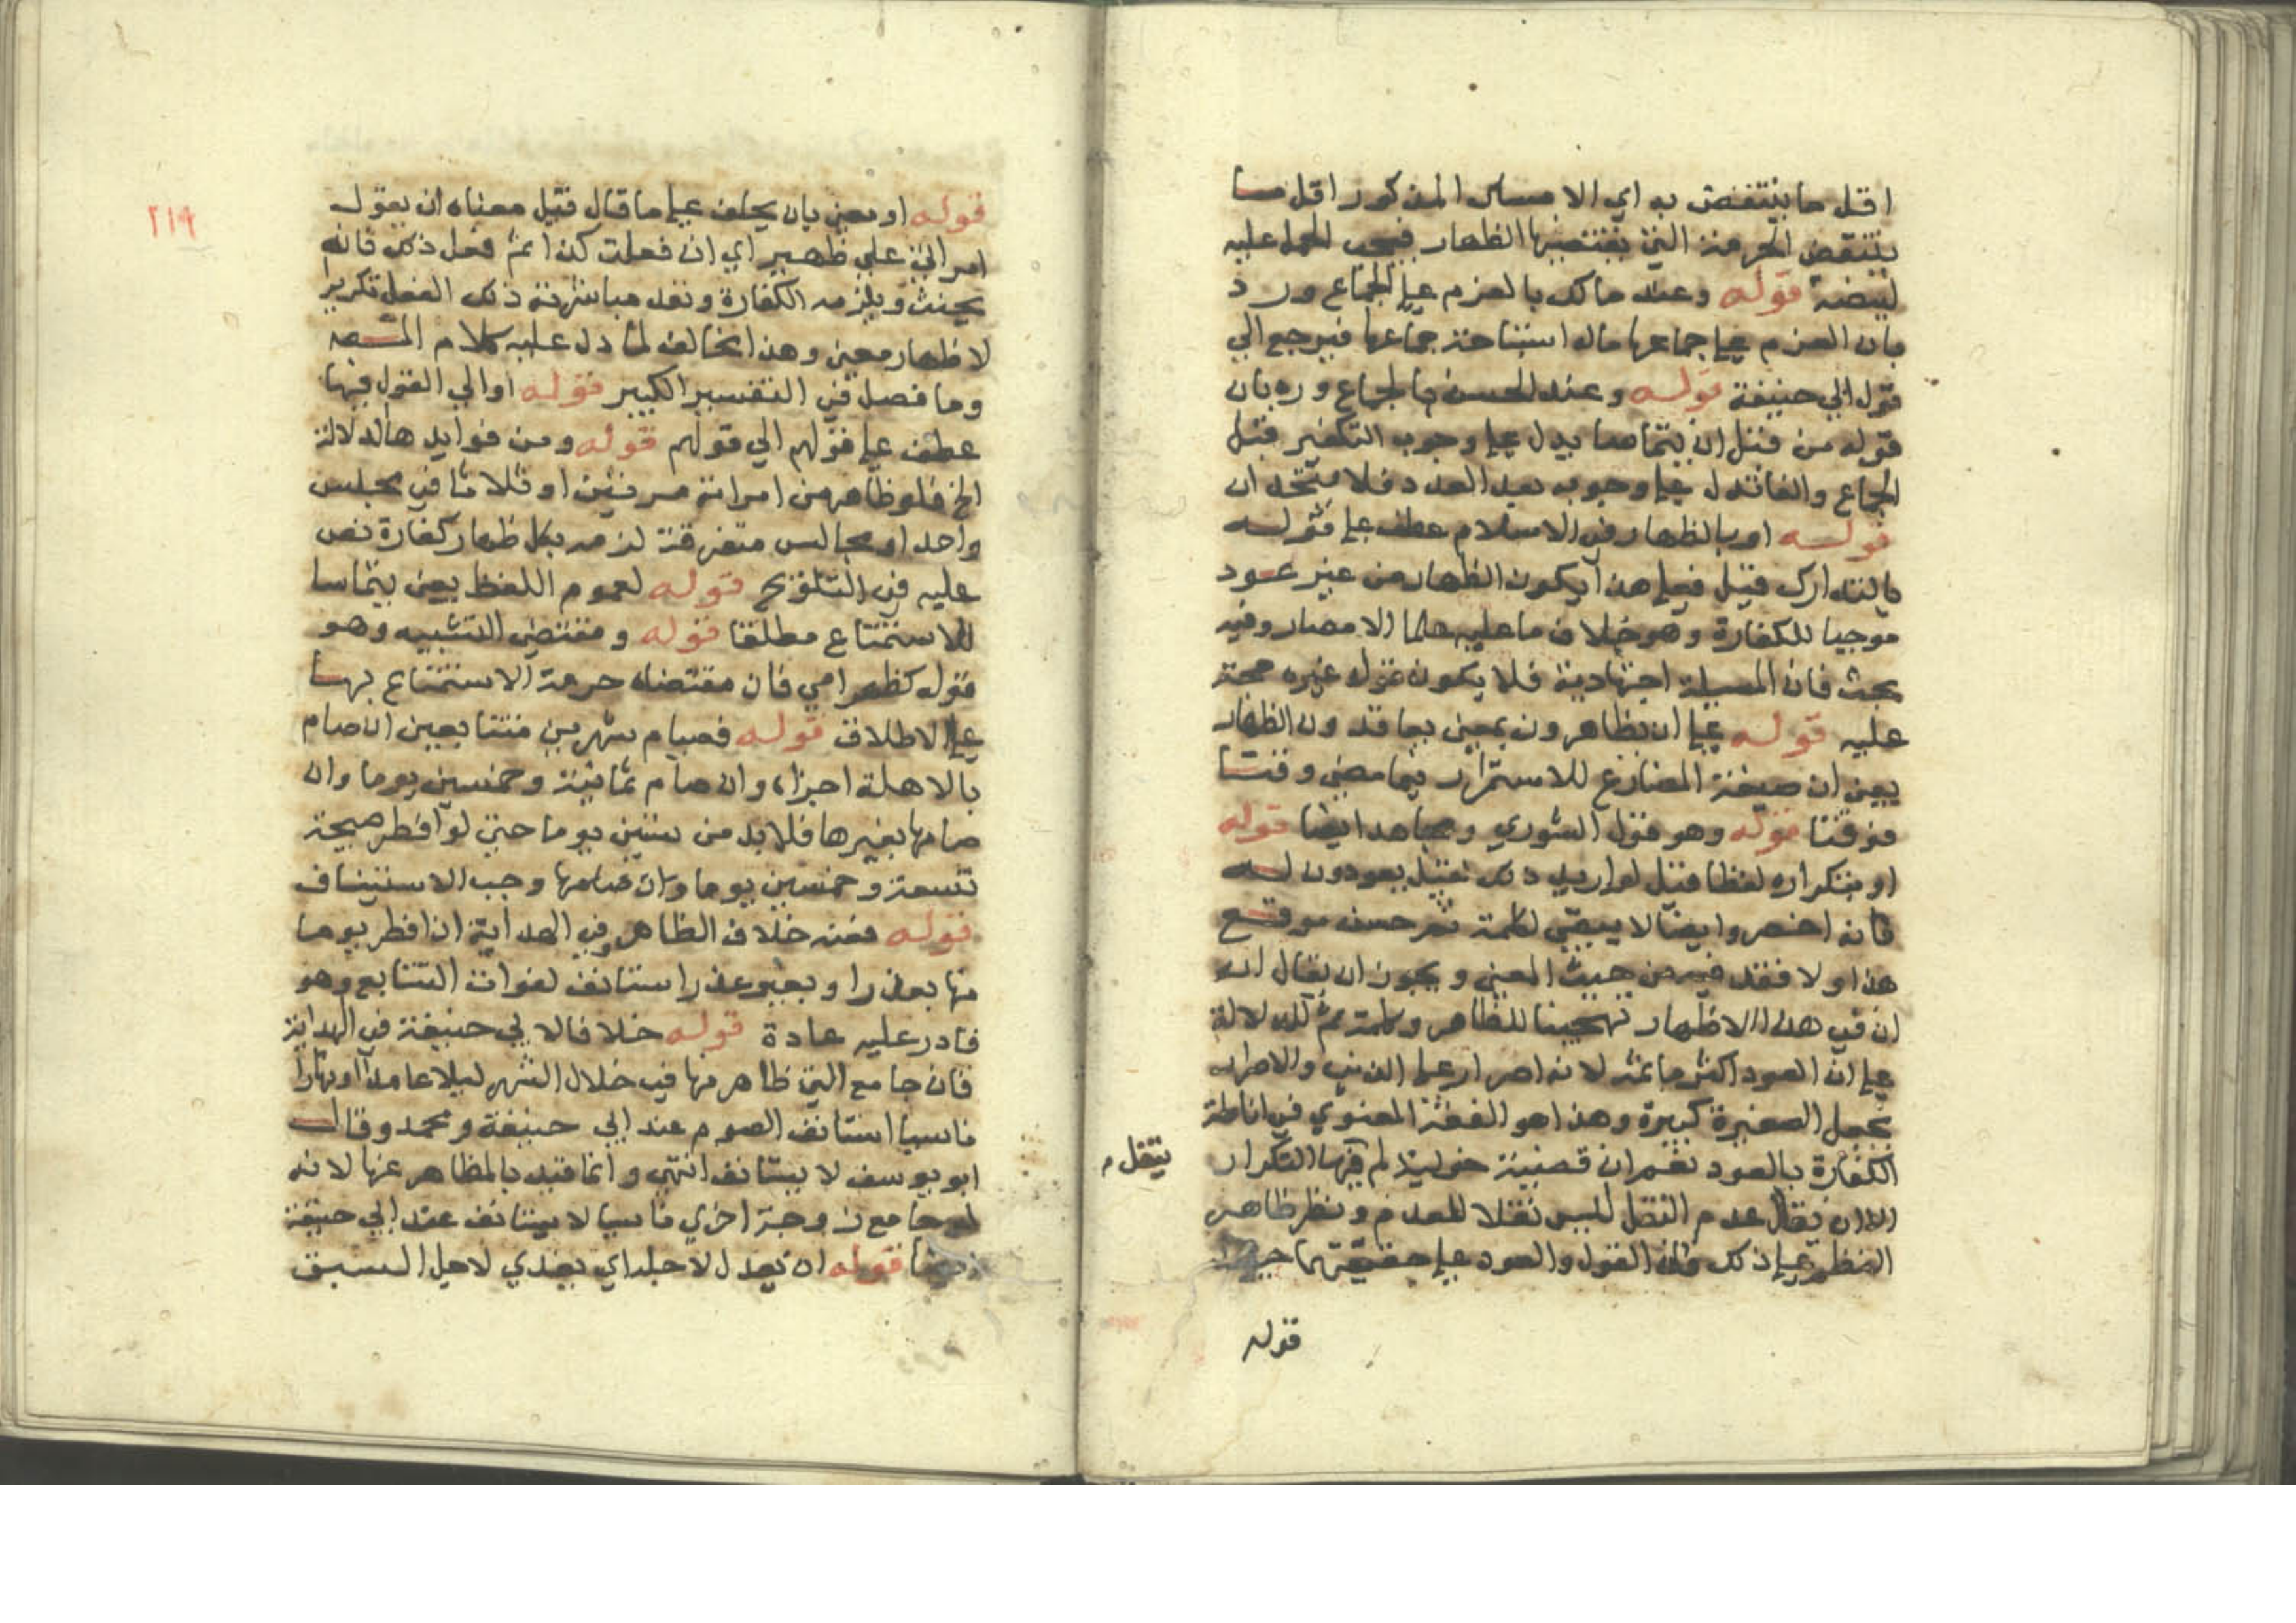 اقل ما ينتقض به اي الامساك المذكور اقل مما
ينتقض الحرمة التي يقتضيها الظهار فيجب الحمل عليه
قوله وعند مالك بالعزم علي الجماع ورد
بان العزم علي جماعها ماله استباحة جماعها فيرجع الي
قول ابي حنيفة قوله وعند الحسن بالجماع ورد بان
قوله من قبل ان يتماسا يدل علي وجوب التكفير قبل
الجماع والفا تدل علي وجوبه بعد العود فلا يتحدان
قوله او بالظهار في الاسلام عطف علي قوله
بالتدارك قيل فعلي هذا يكون الظهار من غير عود
موجبا للكفارة وهو خلاف ما عليه علما الامصار وفيه
بحث فان المسيلة اجتهادية فلا يكون قول غيره حجة
عليه قوله علي ان يظاهرون بمعني يعتادون الظهار
يعني ان صيغة المضارع للاستمرار فيما مضي وقتا
فوقتا قوله وهو قول الثوري ومجاهد ايضا قوله
او بتكراره لفظا قيل لو اريد ذلك لقيل يعودون له
فانه اخصر وايضا لا يبقي لكلمة ثم حسن موقع
هذا اولا فقد من حيث المعني ويجوز ان يقال ان
ان في هذا الاظهار تهجينا للظاهر وكلمة ثم للدلالة
علي ان العود اكثر ما ثمه لانه اصرار علي الذنب والاصرار
يجعل الصغيرة كبيرة وهذا هو الفقه المعنوي في اناطة
الكفارة بالعود نعم ان قصية خولة لم فيها التكرار
ينقل م
الا ان يقال عدم النقل ليس نقلا للعدم ونظر ظاهر
النظم علي ذلك فان القول والعود علي حقيقتهما
قوله
٢١٩
قوله او بمعني بان يحلف علي ما قال قيل معناه ان يقول
امراتي علي ظهير اي ان فعلت كذا ثم فعل ذلك فانه
يحنث ويلزمه الكفارة وبعد مباشرته ذلك الفعل تكريرا
لا ظهار معين وهذا مخالف لما دل عليه كلام المصه
وما فصل في التفسير الكبير قوله او الي القول فيها
عطف علي قولهم الي قولهم قوله ومن فوايدها الدلالة
الخ فلو ظاهر من امراته مرتين او ثلاثا في مجلس
واحد او مجالس متفرقة لزمه بكل ظهار كفارة نص
عليه في التلويح قوله لعموم اللفظ يعني يتماسا
للاستمتاع مطلقا قوله ومقتضي التشبيه وهو
قوله كظهر امي فان مقتضاه حرمة الاستمتاع بها
علي الاطلاق قوله فصيام شهرين متتابعين ان صام
بالاهلة اجزاه وان صام ثمانية وخمسين يوما وان
صامها بغيرها فلا بد من ستين يوما حتي لو افطر صبيحة
تسعة وخمسين يوما وان صامها وجب الاستيناف
قوله فعنه خلاف الظاهر وفي الهداية ان افطر يوما
منها بعذر او بغير عذر استانف لفوات التتابع وهو
قادر عليه عادة قوله خلافا لابي حنيفة في الهداية
فان جامع التي ظاهر منها في خلال الشهر ليلا عامدا او نهارا
ناسيا استانف الصوم عند ابي حنيفة ومحمد وقال
ابو يوسف لا يستانف انتهي وانما قيد بالمظاهر عنها لانه
لو جامع زوجة اخري ناسيا لا يستانف عند ابي حنيفة
قوله ان يعدل لاجله اي يفدي لاجل السبق